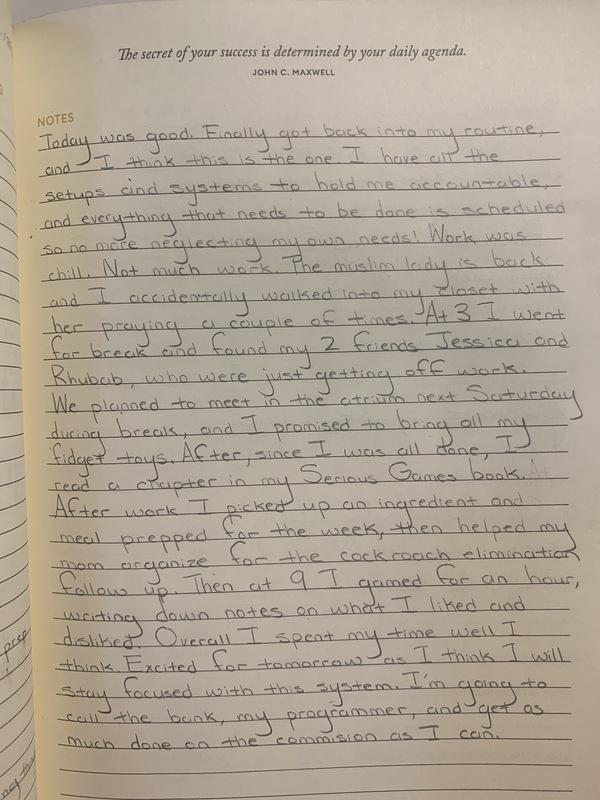 The secret of your success is determined by your daily agenda.
JOHN C. MAXWELL
NOTES
Today was good. Finally got back into my routine,
and I think this is the one. I have all the
setups and systems to hold me accountable,
and everything that needs to be done is scheduled
so no more neglecting my own needs! Work was
chill. Not much work. The muslim lady is back
and I accidentally walked into my closet with
her praying a couple of times. At 3 I went
for break and found my 2 friends Jessica and
Rhubab, who were just getting off work.
We planned to meet in the atrium next Saturday
during break, and I promised to bring all my
fidget toys. After, since I was all done, I
read a chapter in my Serious Games book.
After work I picked up an ingredient and
meal prepped for the week, then helped my
mom organize for the cockroach elimination
follow up. Then at 9 I gamed for an hour,
writing down notes on what I liked and
disliked. Overall I spent my time well I
think. Excited for tomorrow as I think I will
stay focused with this system. I'm going to
call the bank, my programmer, and get as
much done on the commision as I can.
prep